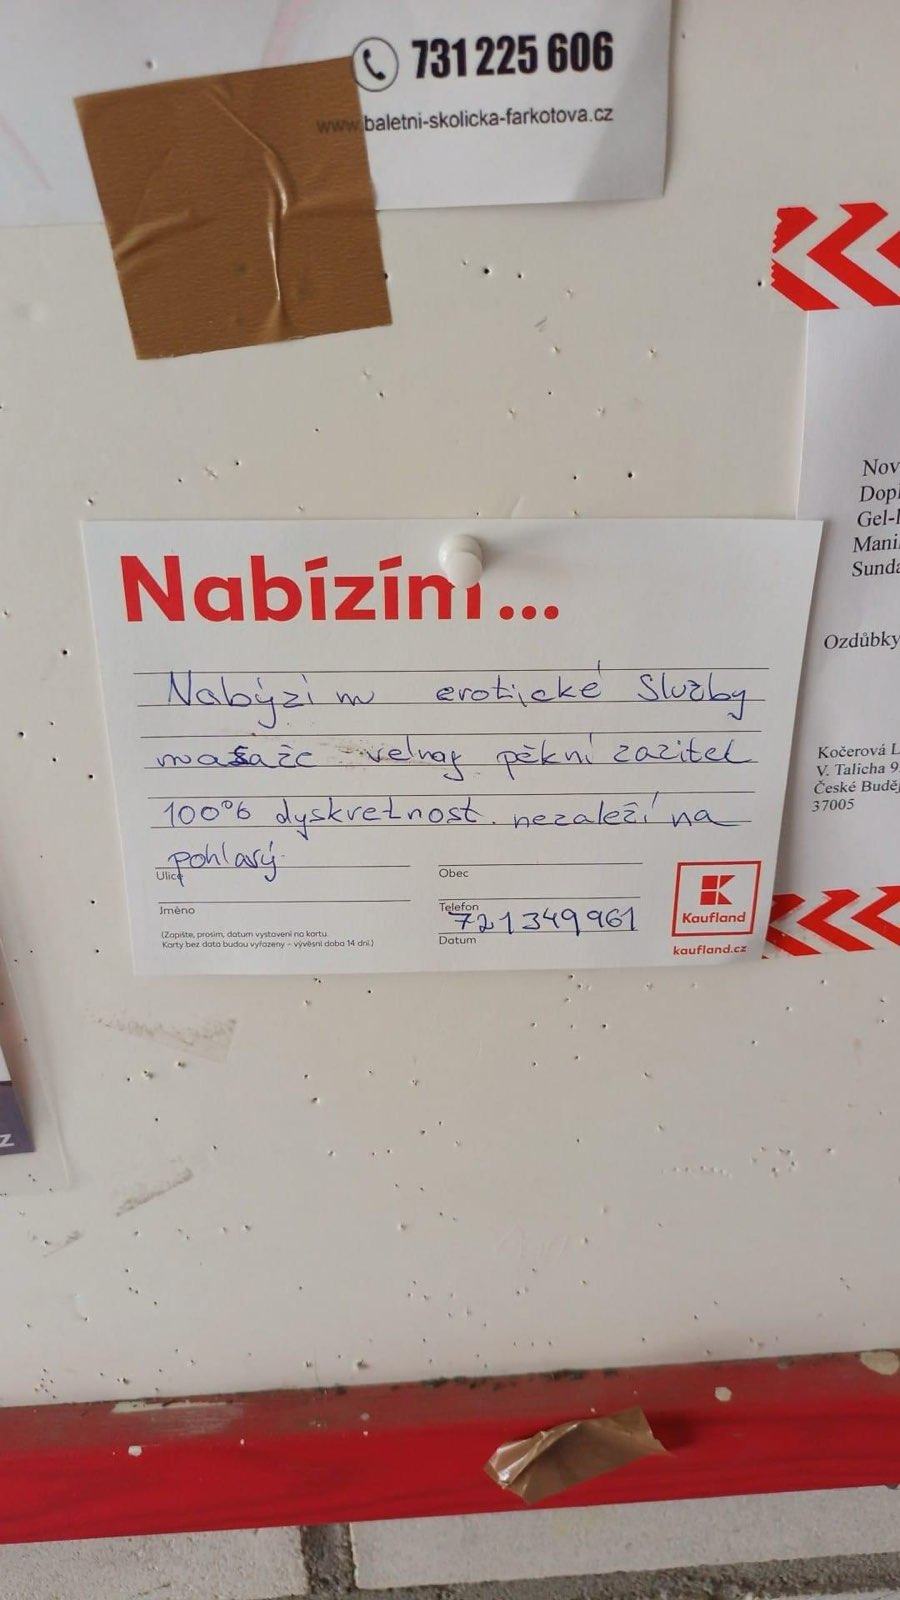 731 225 606
www.baletni-skolicka-farkotova.cz
Nabízím...
Nabýzi m erotické Služby
masaže velmy pěkni zazitek
100% dyskretnost. nezaleží na
pohlavý
Ulice
Obec
Jméno
Telefon
721349961
Datum
(Zapište, prosím, datum vystavení na kartu.
Karty bez data budou vyřazeny – vývěsní doba 14 dní.)
Kaufland
kaufland.cz
Nov
Dopl
Gel-l
Mani
Sunda
Ozdůbky
Kočerová L
V. Talicha 9
České Buděj
37005
z